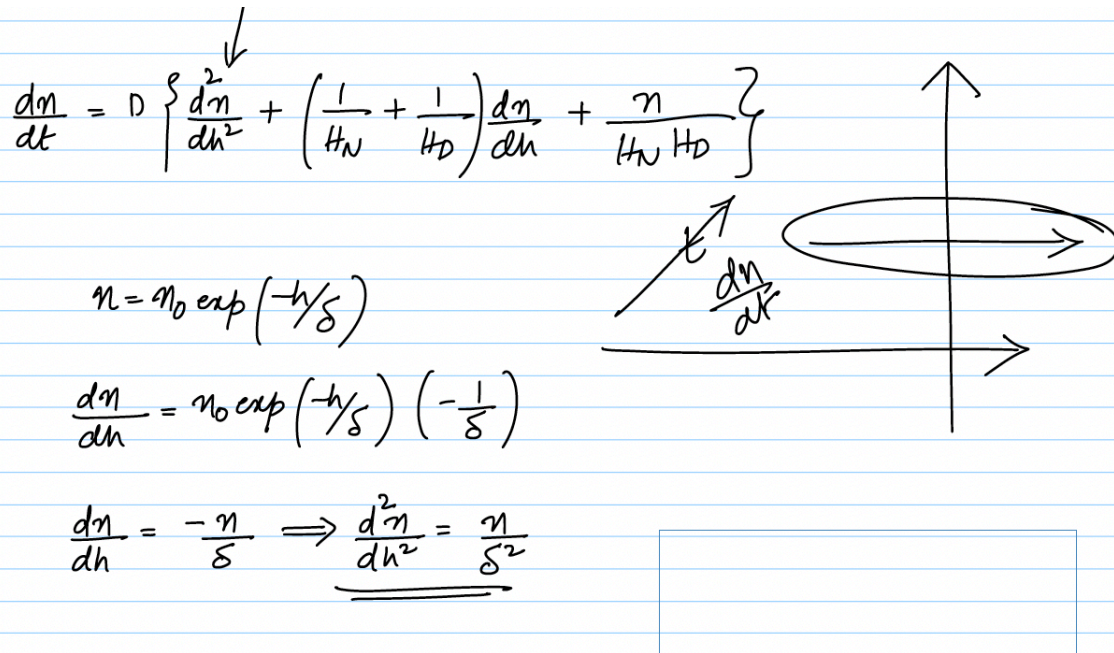 dn/dt = D { d²n/dh² + (1/H_N + 1/H_D) dn/dh + n/(H_N H_D) }
t
dn/dt
n = n₀ exp(-h/δ)
dn/dh = n₀ exp(-h/δ) (-1/δ)
dn/dh = -n/δ ⟹ d²n/dh² = n/δ²